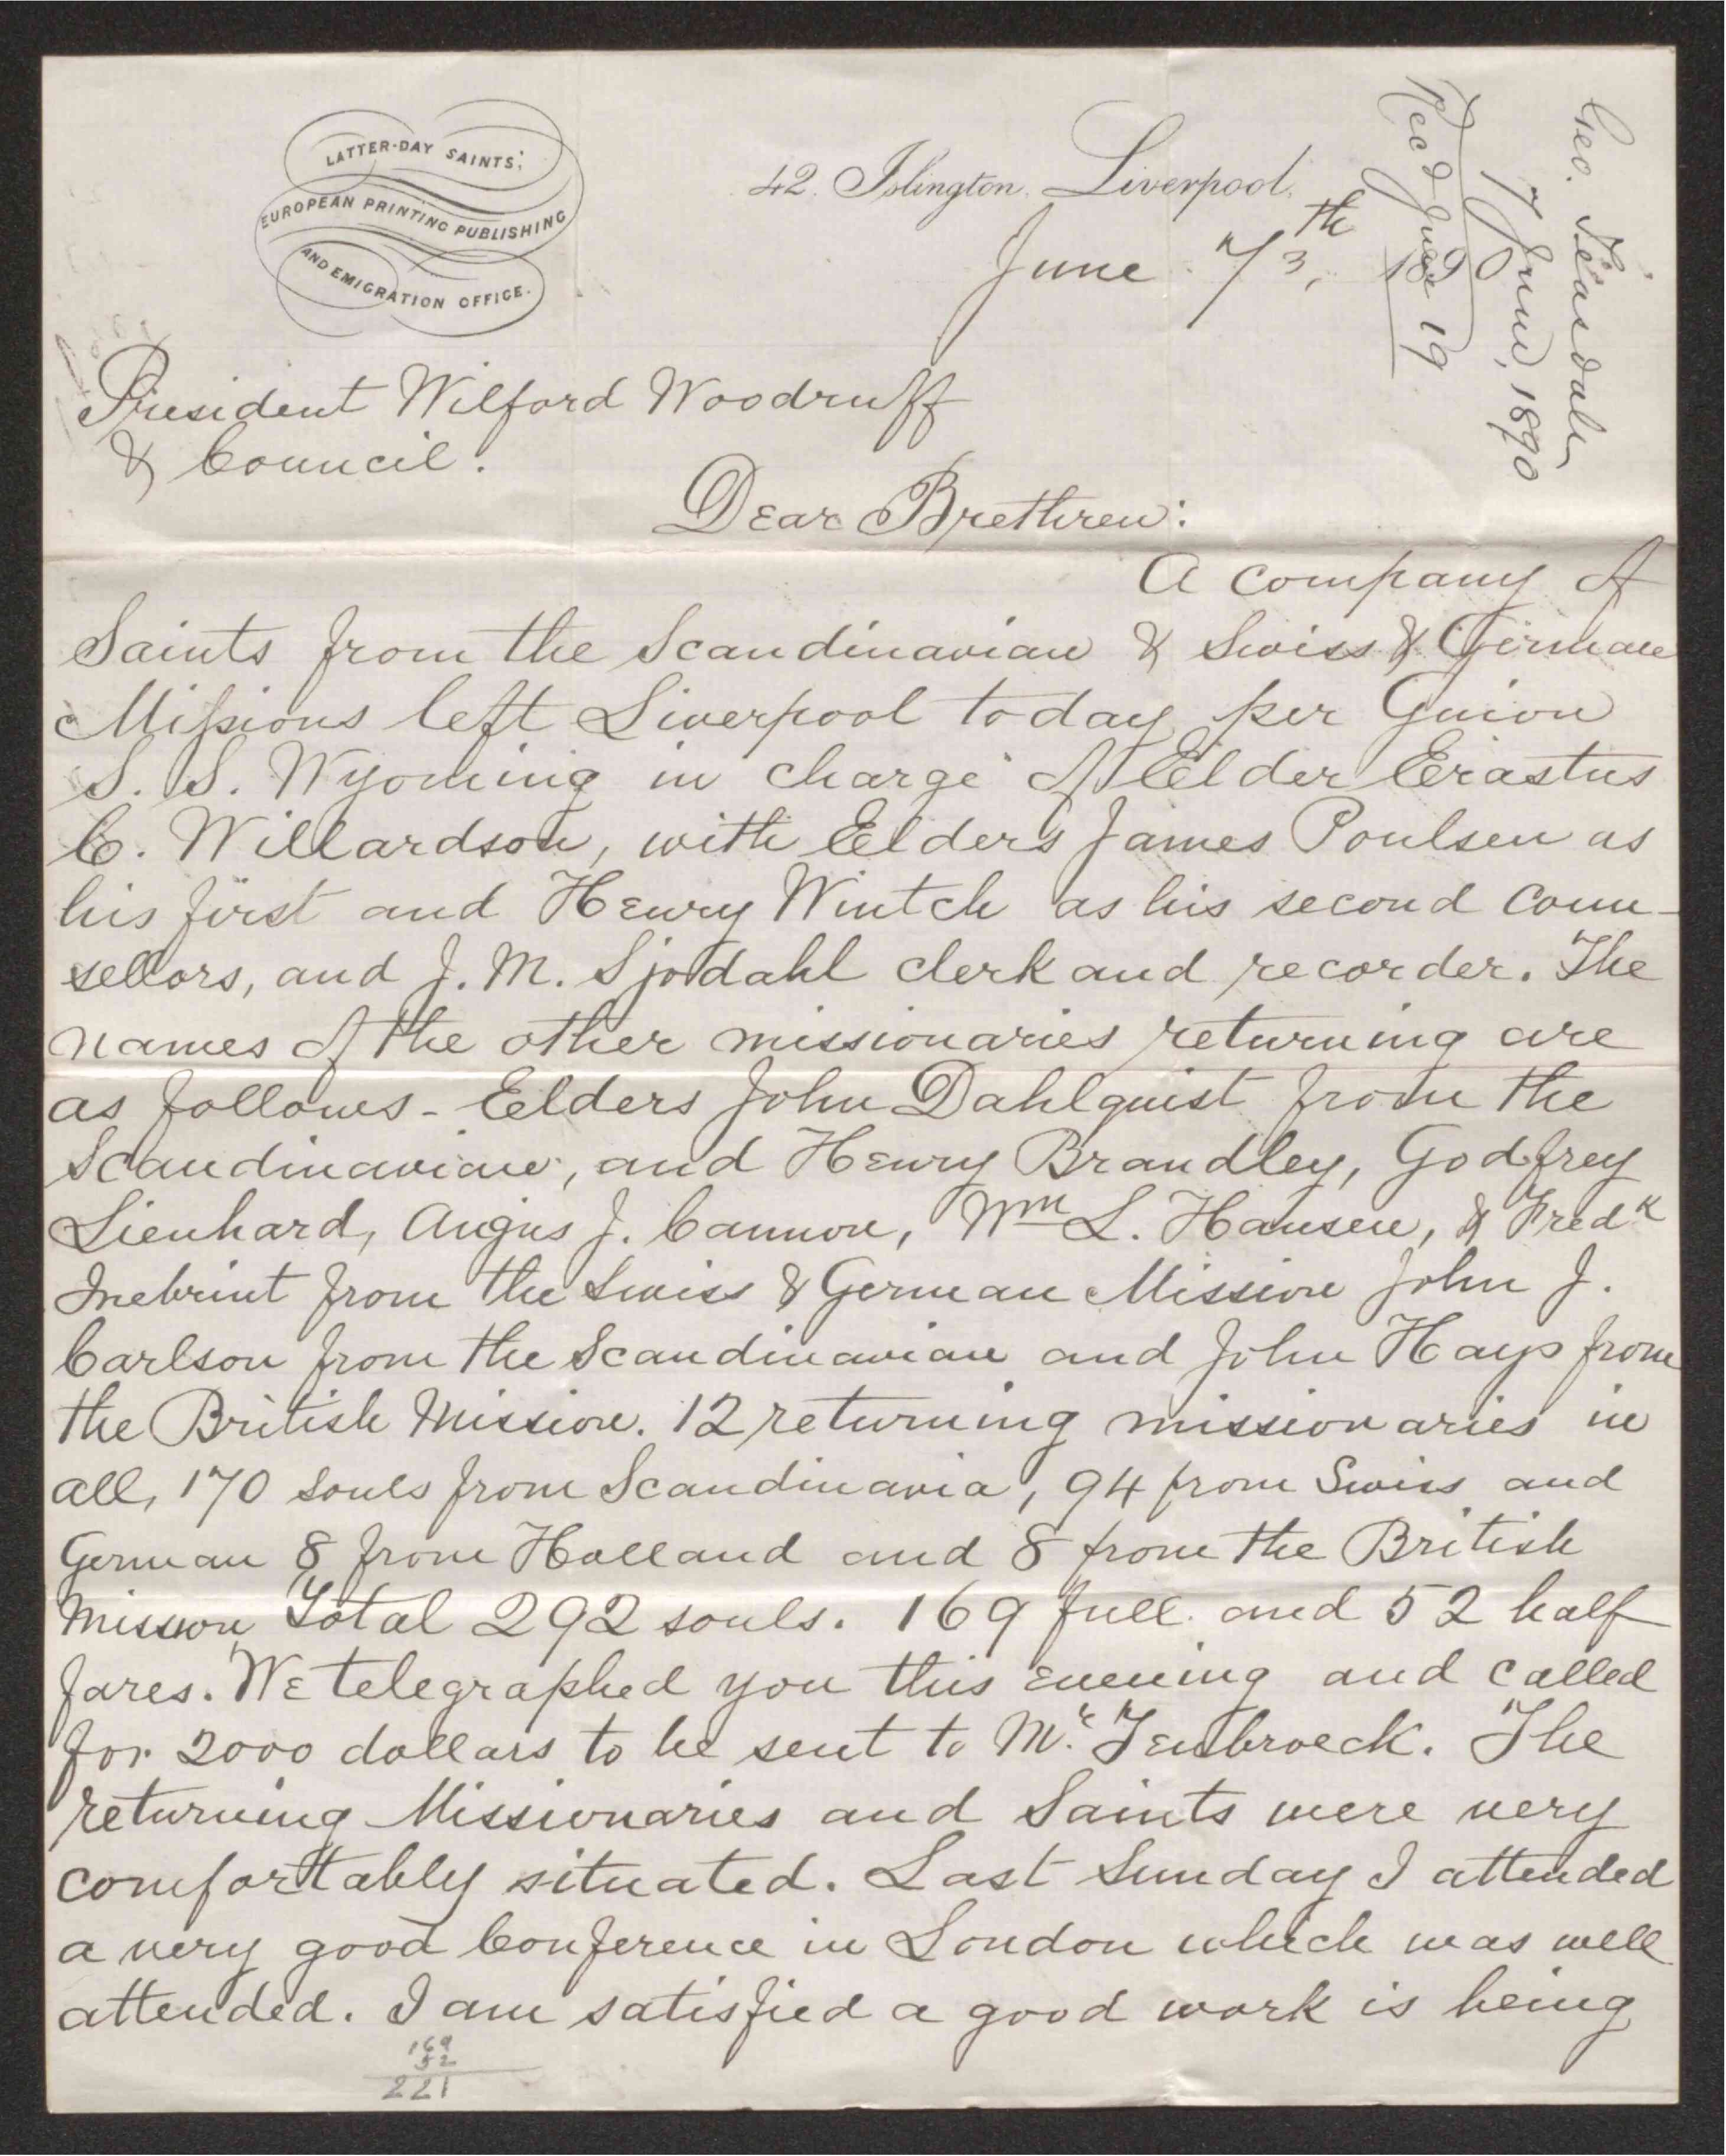 LATTER-DAY SAINTS'
EUROPEAN PRINTING PUBLISHING
AND EMIGRATION OFFICE.
42. Islington. Liverpool.
June 7th 1890
Geo. Teasdale
7 June, 1890
Recd June 19
President Wilford Woodruff
& Council.
Dear Brethren:
A company of
Saints from the Scandinavian & Swiss & German
Missions left Liverpool today per Guion
S. S. Wyoming in charge of Elder Erastus
C. Willardson, with Elders James Poulsen as
his first and Henry Wintch as his second coun-
sellors, and J. M. Sjodahl clerk and recorder. The
names of the other missionaries returning are
as follows - Elders John Dahlquist from the
Scandinavian, and Henry Brandley, Godfrey
Lienhard, Angus J. Cannon, Wm L. Hansen, & Fredk
from the Swiss & German Mission John J.
Carlson from the Scandinavian and John Hays from
the British Mission. 12 returning missionaries in
all, 170 souls from Scandinavia, 94 from Swiss and
German 8 from Holland and 8 from the British
Mission Total 292 souls. 169 full and 52 half
fares. We telegraphed you this evening and called
for 2000 dollars to be sent to Mr. Tenbroeck. The
returning Missionaries and Saints were very
comfortably situated. Last Sunday I attended
a very good Conference in London which was well
attended. I am satisfied a good work is being
169
52
221